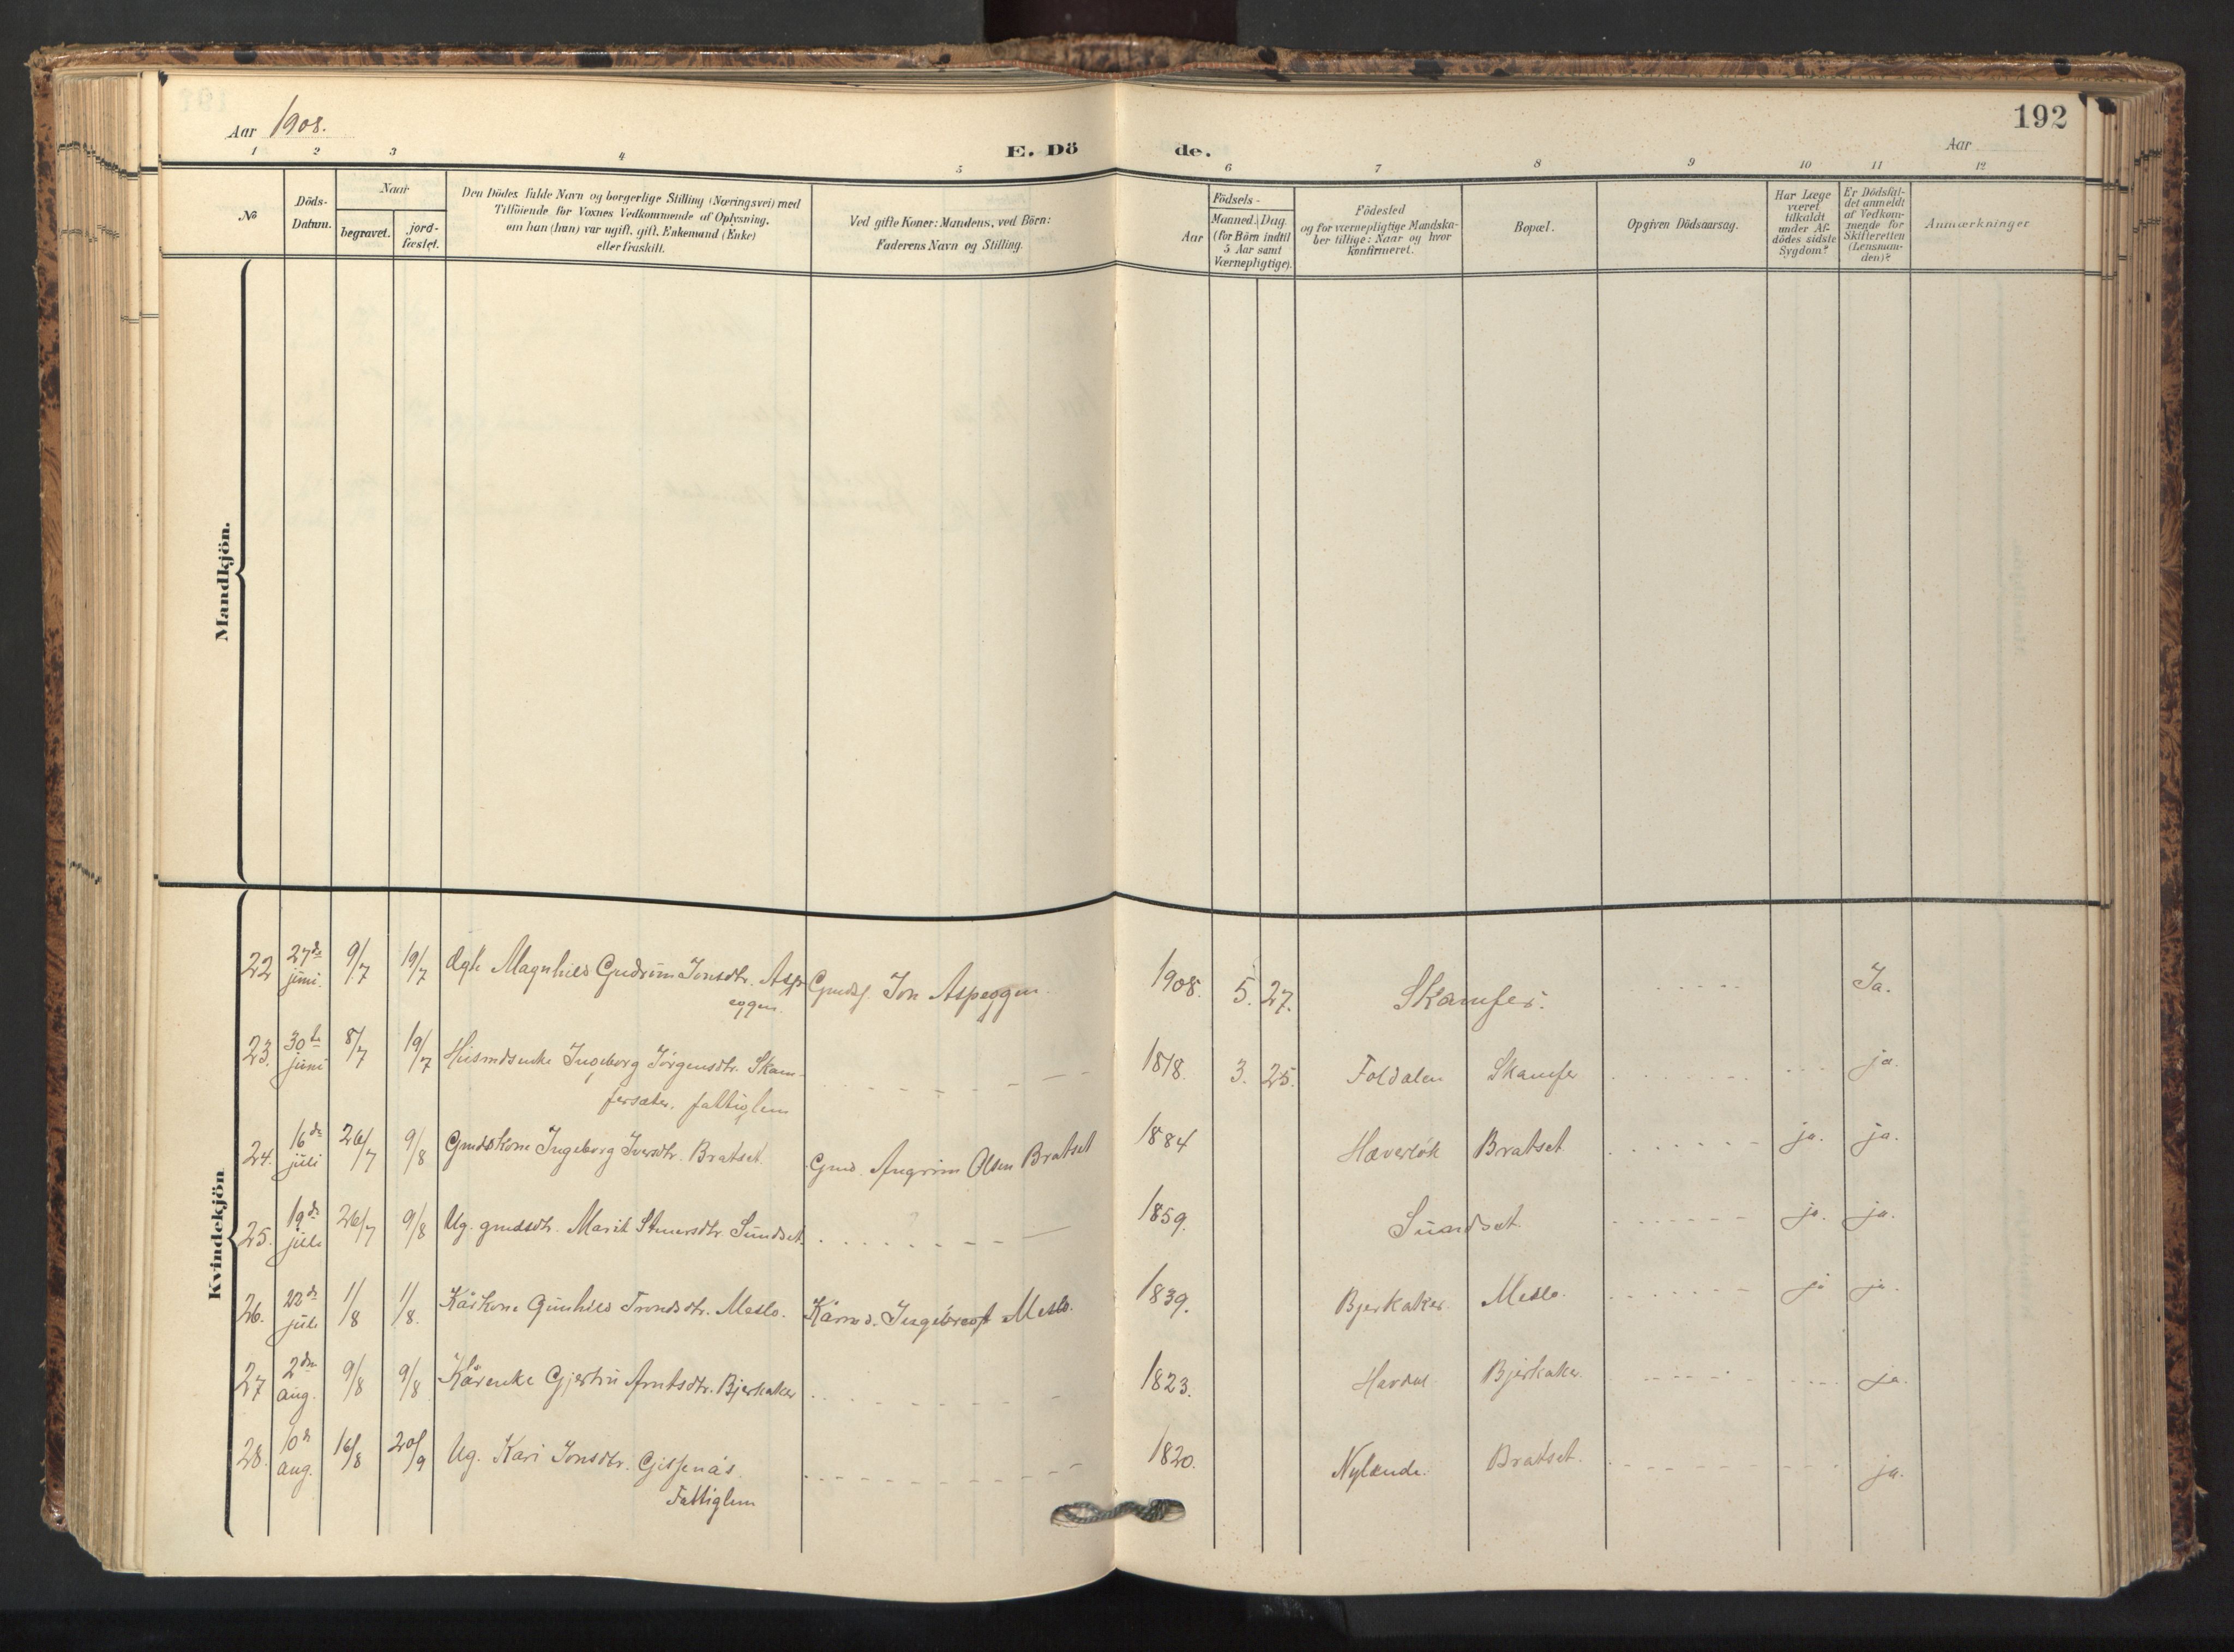 Aar 1908.
192
Aar
E. Dö de.
1 2 3 4 5 6 7 8 9 10 11 12
№
Döds-
Datum.
Naar
begravet.
jord-
fæstet.
Den Dödes fulde Navn og borgerlige Stilling (Næringsvei) med
Tilföiende for Voxnes Vedkommende af Oplysning,
om han (hun) var ugift, gift, Enkemand (Enke)
eller fraskilt.
Ved gifte Koner: Mandens, ved Börn:
Faderens Navn og Stilling.
Födsels-
Aar
Maaned. Dag.
(for Börn indtil
5 Aar samt
Værnepligtige).
Födested
og for værnepligtige Mandska-
ber tillige: Naar og hvor
konfirmeret.
Bopæl.
Opgiven Dödsaarsag.
Har Læge
været
tilkaldt
under Af-
dödes sidste
Sygdom?
Er Dödsfal-
det anmeldt
af Vedkom-
mende for
Skifteretten
(Lensman-
den)?
Anmærkninger
Mandkjön.
Kvindekjön
22 27de juni. 9/7 19/7 Magnhild Gudrun Jonsdtr. Asp-
eggen. Jon Aspeggen. 1908. 5. 27. Skamfer. Ja.
23. 30te juni 8/7 19/7 Husmdsenke Ingeborg Jörgensdtr. Skam-
fersæter. fattiglem 1818. 3. 25. Foldalen Skamfer ja.
24. 16de juli 26/7 9/8 Gmdskone Ingeborg Iversdtr. Bratset. Gmd. Angrim Olsen Bratset 1884 Bratset ja. ja.
25. 19de juli 26/7 9/8 Ug. Marit Sundset. 1859. Sundset. ja. ja.
26. 22de juli 1/8 1/8. Kårkone Gunhild Trondsdtr. Meslo. Kårmd. Ingebregt Meslo. 1839. Bjerkaker. Meslo. ja ja.
27 2den aug. 9/8 9/8 Kårenke Gjertru Arntsdtr. Bjerkaker 1823. Bjerkaker. ja.
28. 10de aug. 16/8 20/9 Ug. Kari Jonsdtr. Gisnås.
Fattiglem 1820. Nylænde. Bratset. ja.